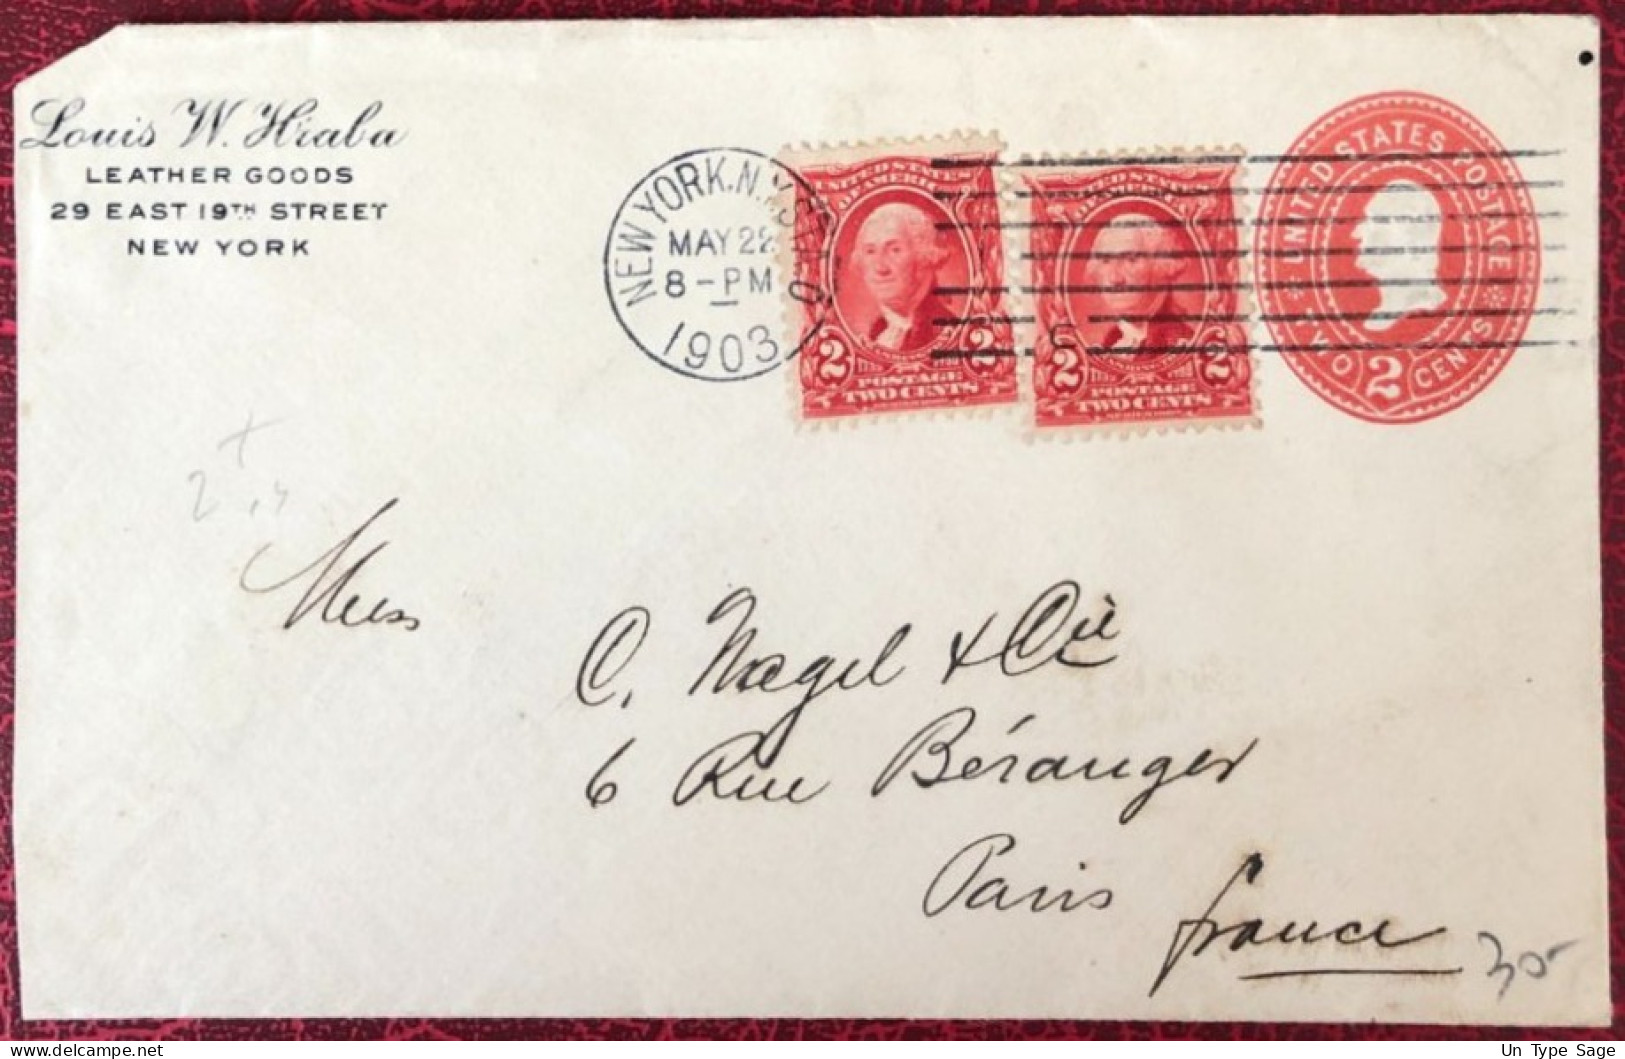 Louis W. Hraba
LEATHER GOODS
29 EAST 19TH STREET
NEW YORK
NEW YORK, N.Y. STA. O
MAY 22
8-PM
1903
UNITED STATES
OF AMERICA
2 2
POSTAGE
TWO CENTS
UNITED STATES
OF AMERICA
2 2
POSTAGE
TWO CENTS
C
UNITED STATES POSTAGE
TWO 2 CENTS
2
Mess
C. Nagel & Cie
6 Rue Béranger
Paris
France
30-
Un Type Sage